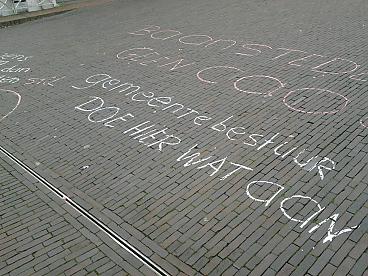 BAANSTED
GEEN CAO
gemeentebestuur
DOE HIER WAT aan